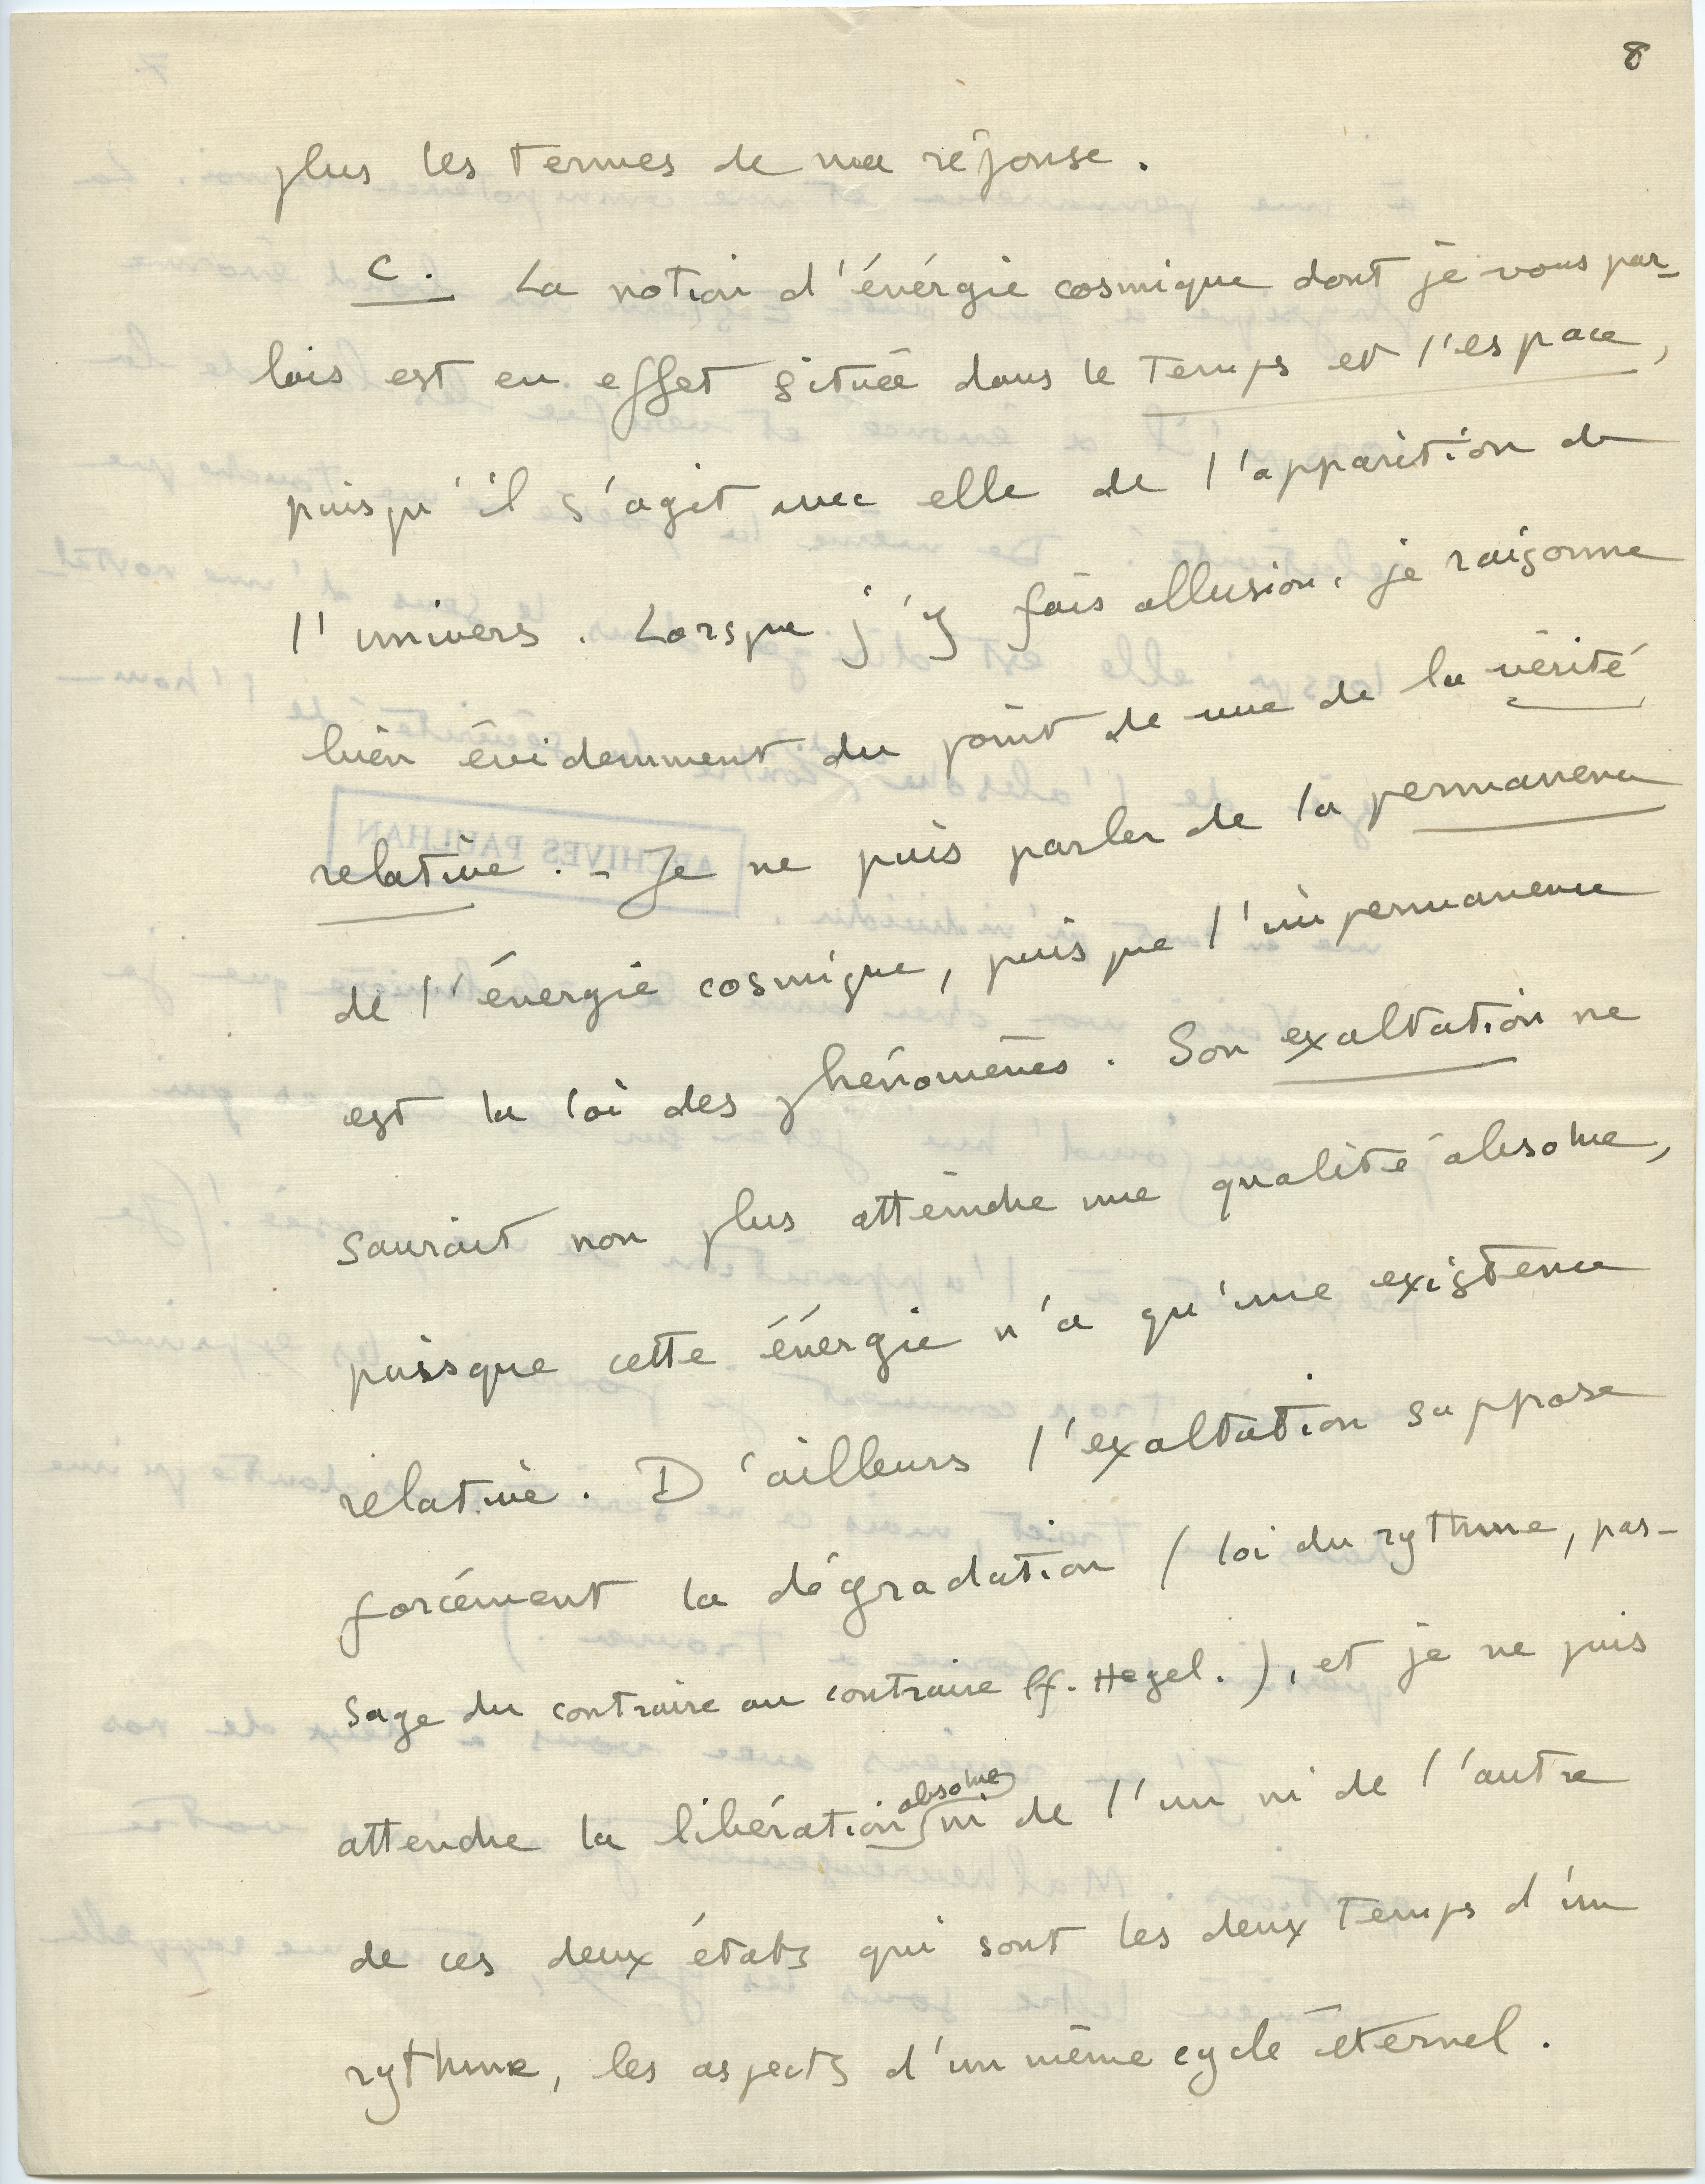 8
plus les termes de ma réponse.
C. La notion d'énérgie cosmique dont je vous par-
lais est en effet située dans le temps et l'espace,
puisqu'il s'agit avec elle de l'apparition de
l'univers. Lorsque j'y fais allusion, je raisonne
bien évidemment du point de vue de la vérité
relative. - Je ne puis parler de la permanence
de l'énergie cosmique, puisque l'impermanence
est la loi des phénomènes. Son exaltation ne
saurait non plus atteindre une qualité absolue,
puisque cette énergie n'a qu'une existence
relative. D'ailleurs l'exaltation suppose
forcément la dégradation (loi du rythme, pas-
sage du contraire au contraire cf. Hegel.), et je ne puis
attendre la libération absolue ni de l'un ni de l'autre
de ces deux états qui sont les deux temps d'un
rythme, les aspects d'un même cycle éternel.
ARCHIVES PAULHAN